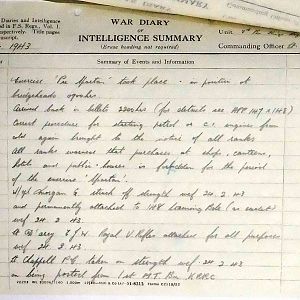 Diaries and Intelligence
in F.S. Regs., Vol. I.
respectively. Title pages
manuscript.
1943
WAR DIARY
or
INTELLIGENCE SUMMARY
(Erase heading not required)
Unit
Commanding Officer
Summary of Events and Information
Exercise 'Pre Martin' took place - in position at
bridgeheads
Arrived back in billets 2300hrs (for details see APP 1147 & 1148)
Correct procedure for starting petrol or C.I. engines from
cold again brought to the notice of all ranks
All ranks warned that purchases at shops, canteens,
hotels and public houses is forbidden for the period
of the exercise 'Martin'.
Morgan G. struck off strength wef 24.2.43
and permanently attached to 148 Training Bde (as
wef 24.2.43
Royal U. Rifles attached for all purposes
wef 24.2.43
Chappell P.G. taken on strength wef 24.2.43
on being posted from 1st M.T. Bn KRRC